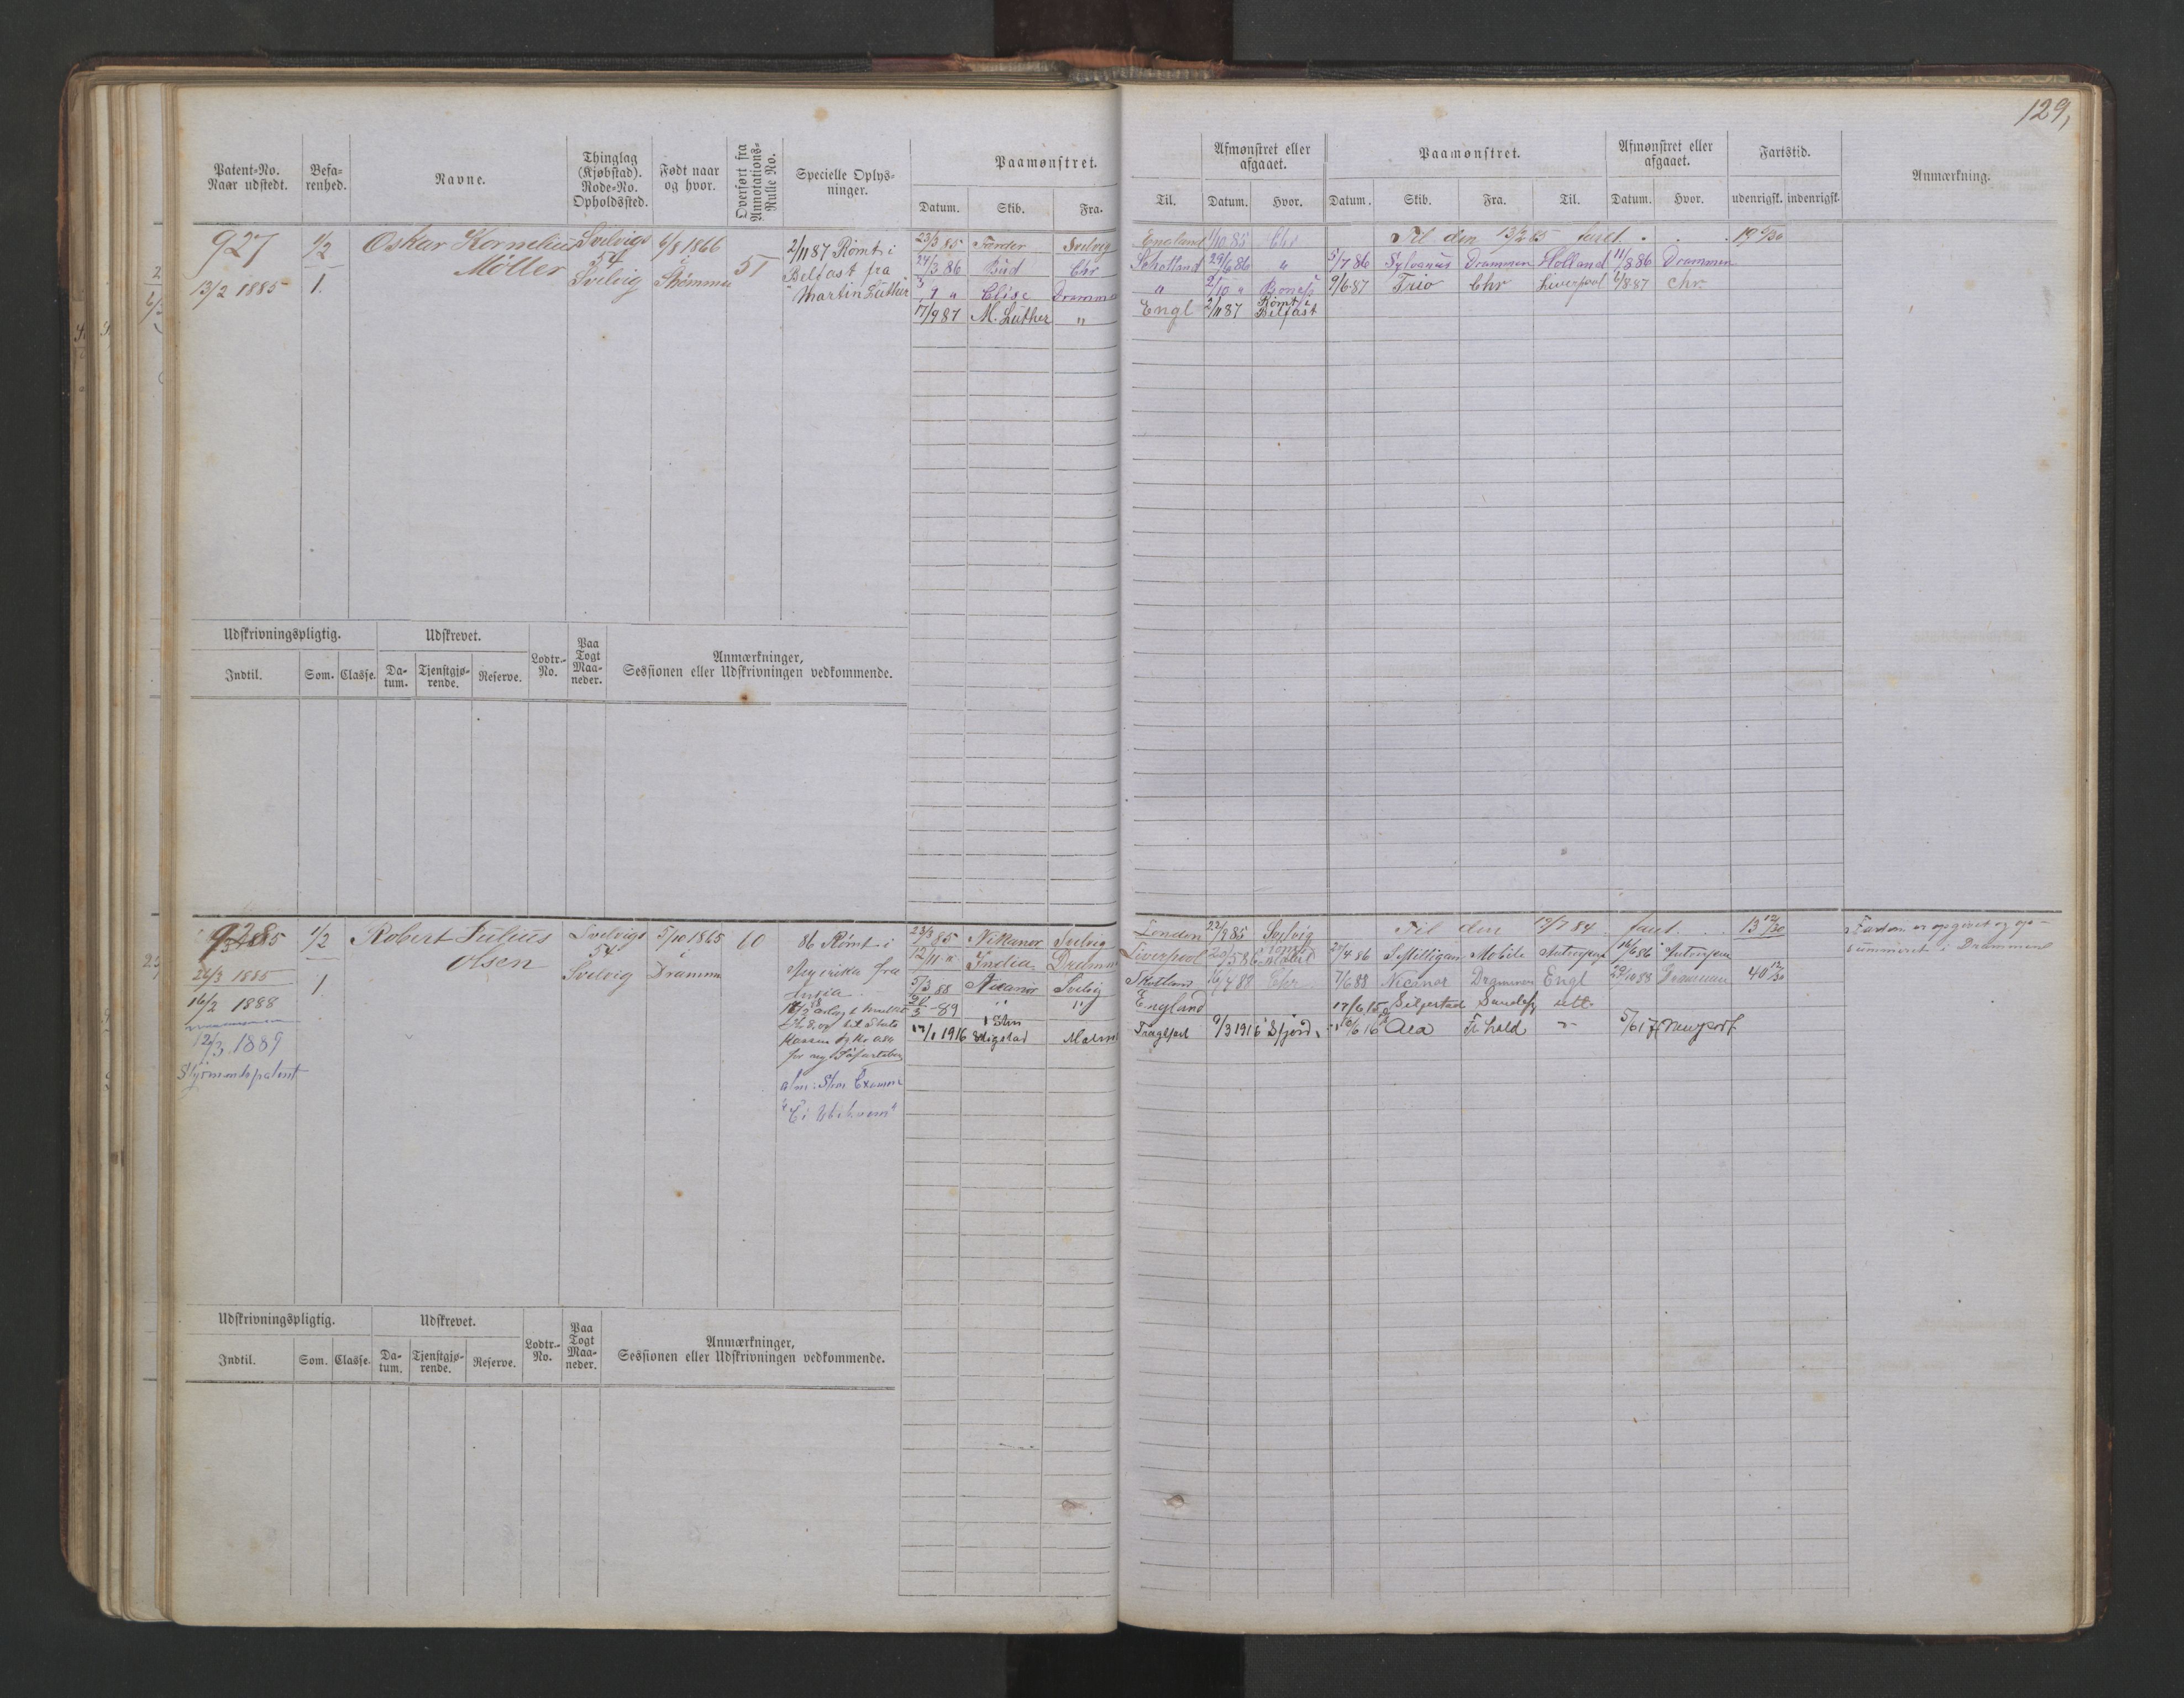 129,
Patent-No. Naar udstedt.
Befarenhed.
Navne.
Thinglag (Kjøbstad). Rode-No. Opholdssted.
Født naar og hvor.
Overført fra Annotations-Rulle No.
Specielle Oplysninger.
Paamønstret.
Datum. Skib. Fra. Til.
Afmønstret eller afgaaet.
Datum. Hvor.
Paamønstret.
Datum. Skib. Fra. Til.
Afmønstret eller afgaaet.
Datum. Hvor.
Fartstid.
udenrigsk. indenrigsk.
Anmærkning.
927
13/2 1885
1/2
1.
Oskar Kornelius
Møller
Svelvigs
54
Svelvig
6/8 1866
i
Strømmen
51
2/11 87 Rømt i
Belfast fra
Martin Luther
23/3 85 Færder Svelvig England 1/10 85 Chr Til den 13/2 85 faret . . . 19
24/3 86 Bud Chr Schotland 29/6 86 " 5/7 86 Sylvanus Drammen Holland 11/8 86 Drammen
" Elise Drammen " 2/10 " Boness 9/6 87 Trio Chr Liverpool 6/8 87 Chr.
17/9 87 M. Luther " Engl 2/11 87 Rømt i Belfast
Udskrivningspligtig.
Udskrevet.
Lodtr.-No.
Paa Togt Maaneder.
Anmærkninger,
Sessionen eller Udskrivningen vedkommende.
Indtil. Som. Classe. Datum. Tjenstgjørende. Reserve.
928
24/3 1885
16/2 1888
12/3 1889
Styrmandspatent
1/2
1
Robert Julius
Olsen
Svelvigs
54
Svelvig
5/10 1865
i
Drammen
60
86 Rømt i
fra
India.
23/3 85 Nikanor Svelvig London 22/9 85 Svelvig Til den 19/7 84 faret . . 13 12/30
12/11 " India Drammen Liverpool 27/4 86 Mobile Antwerpen 16/6 86 Antwerpen
5/3 88 Nicanor Svelvig Skotland 16/4 88 Chr 7/6 88 Nicanor Drammen Engl 29/10 88 40 12/30
89 " " England
17/1 1916 9/3 1916 Sfjord. Fr hald 5/6 17 Newport
Farten er opgivet og op-
summeret i Drammen
Udskrivningspligtig.
Udskrevet.
Lodtr.-No.
Paa Togt Maaneder.
Anmærkninger,
Sessionen eller Udskrivningen vedkommende.
Indtil. Som. Classe. Datum. Tjenstgjørende. Reserve.